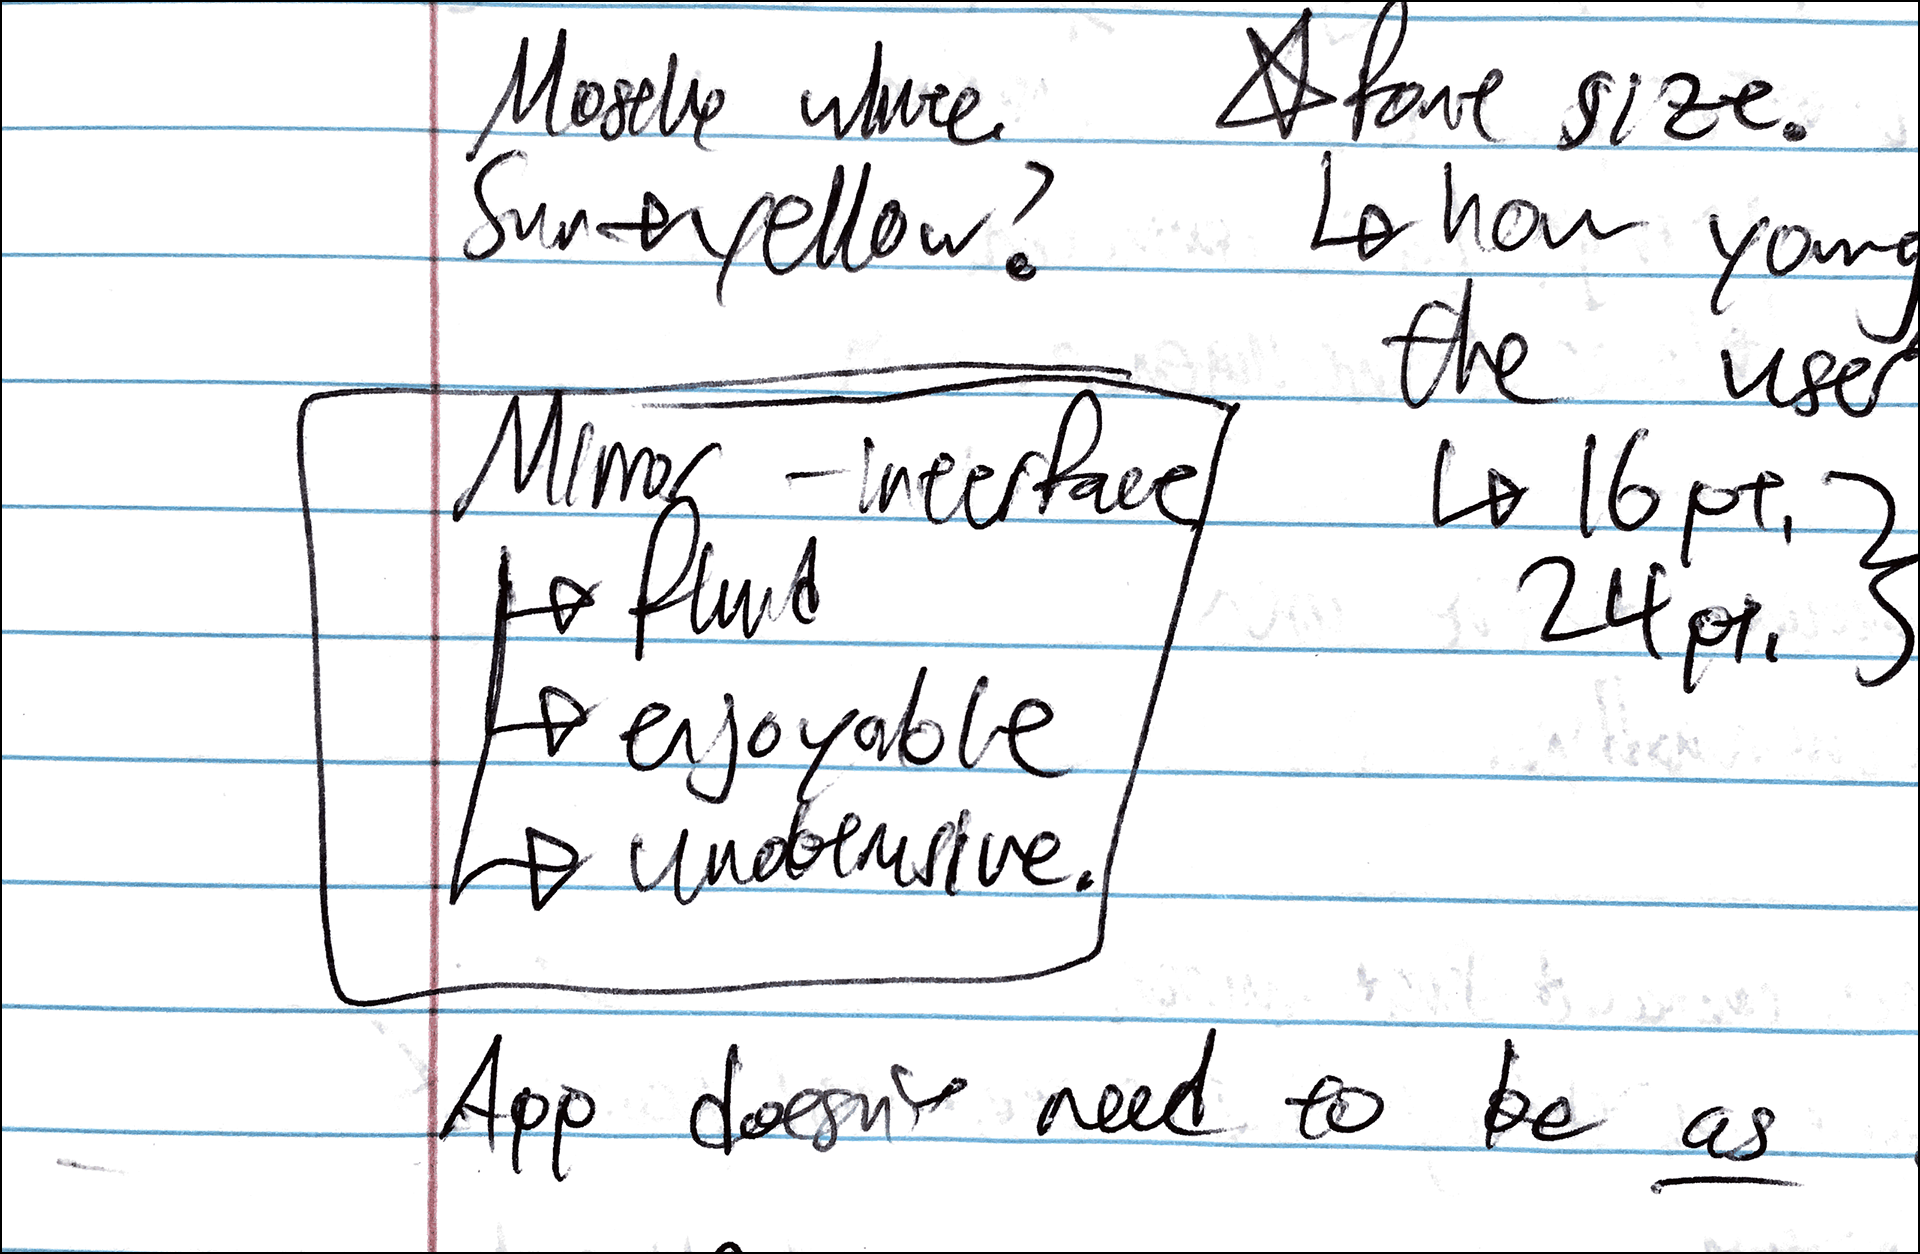 Mostly white.
Sun→yellow?
☆ font size.
↳ how young
the user
↳ 16pt.
24pt.
Mirror - interface
→ fluid
→ enjoyable
→ unobtrusive.
App doesn't need to be as